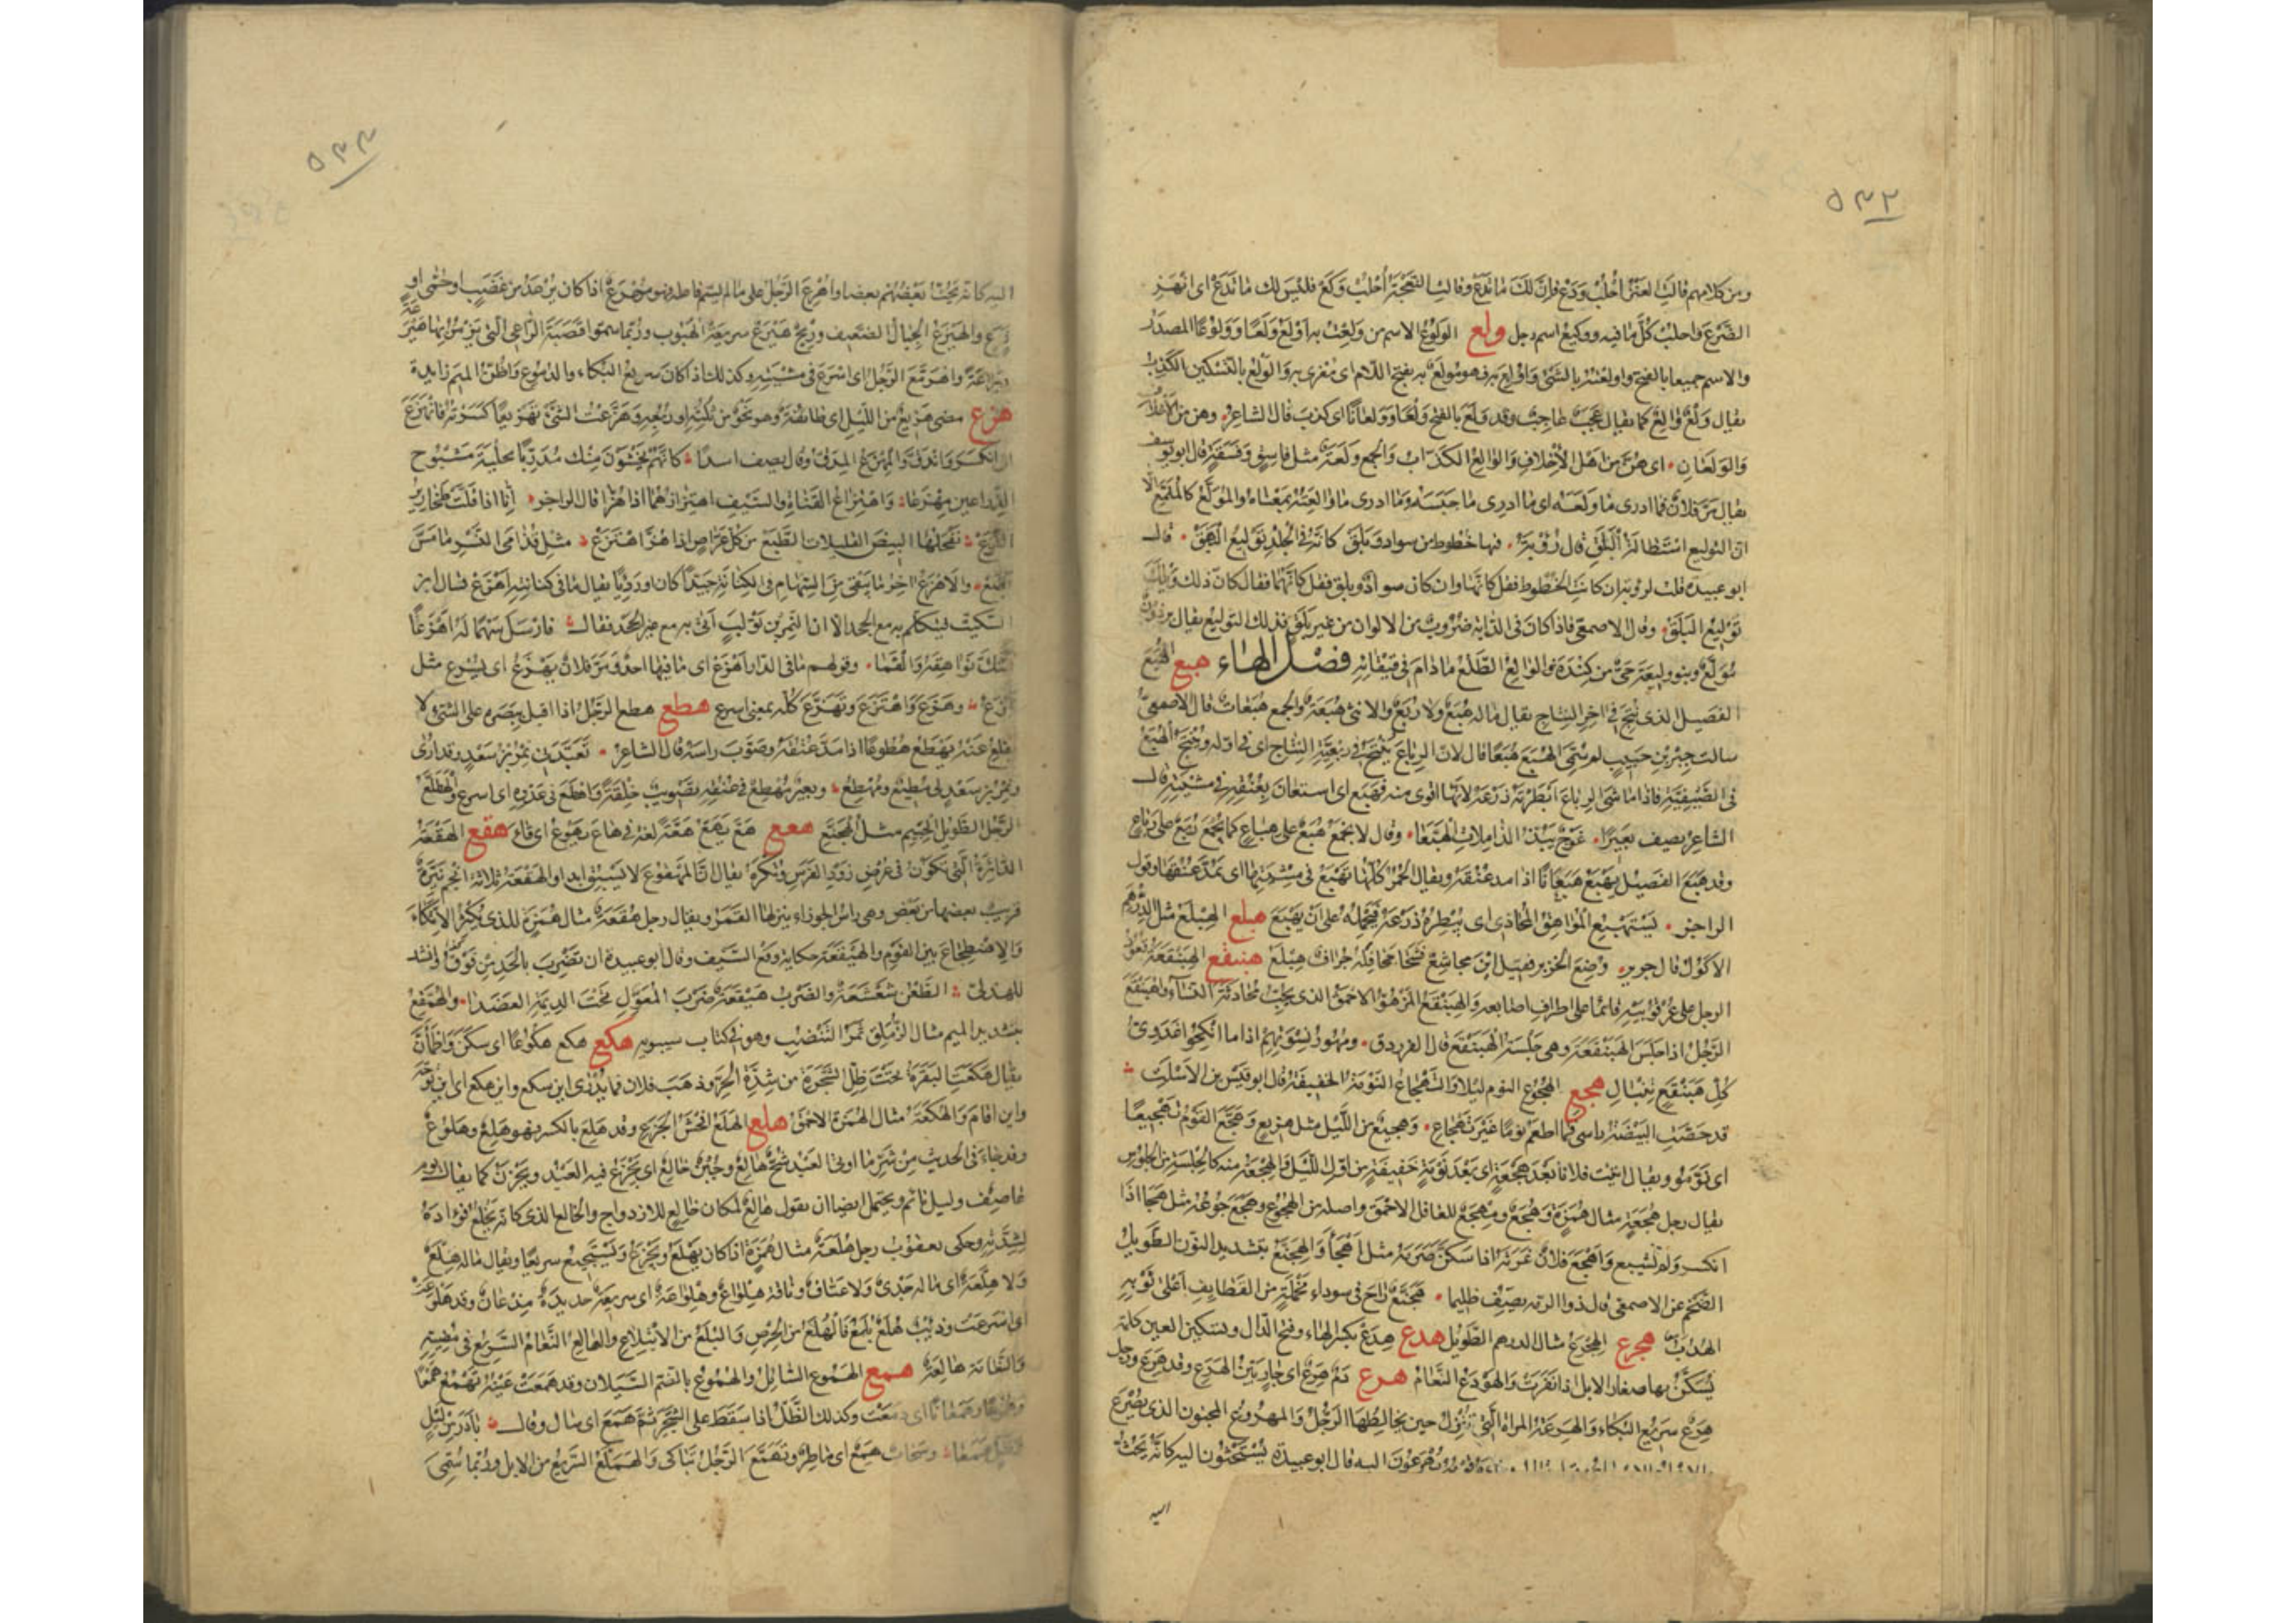 ٥٣٢
ومن كلامهم قالت العنز أحلب ودع فان لك ما تدع وقالت النعجة أحلب وكع فليس لك ما تدع اى انهز
الضرع واحلب كل ما فيه ووكيع اسم رجل ولع الولوع الاسم من ولعت به اولع ولعا وولوعا المصدر
والاسم جميعا بالفتح واولعته بالشئ واولع به فهو مولع به بفتح اللام اى مغرى به والولع بالتسكين الكذب
يقال ولع والع كما يقال عجب عاجب وقد ولع بالفتح ولعا وولعانا اى كذب قال الشاعر وهن من الاخلاف
والولعان اى هن من اهل الاخلاف والوالع الكذاب والجمع ولعة مثل فاسق وفسقة قال ابو يوسف
يقال مر فلان فما ادرى ما ولعه اى ما ادرى ما حبسه وما ادرى ما والعته بمعناه والمولع كالملمع الا
ان التوليع استطالة البلق قال رؤبة فيها خطوط من سواد وبلق كانه فى الجلد توليع البهق قال
ابو عبيدة قلت لرؤبة ان كانت الخطوط فقل كانها وان كان سواد وبلق فقل كانهما فقال كان ذلك ويلك
توليع البلق وقال الاصمعى فاذا كان فى الدابة ضروب من الالوان من غير بلق فذلك التوليع يقال برذون
مولع وبنو وليعة حى من كندة والوالع الطلع ما دام فى قيقائه فصل الهاء هبع الهبع
الفصيل الذى نتج فى اخر النتاج يقال ماله هبع ولا ربع والانثى هبعة والجمع هبعات قال الاصمعى
سالت جبر بن حبيب لم سمى الهبع هبعا قال لان الرباع تنتج فى ربعية النتاج اى فى اوله وينتج الهبع
فى الصيفية فاذا ماشى الرباع ابطرته ذرعه لانها اقوى منه فهبع اى استعان بعنقه فى مشيته قال
الشاعر يصف بعيرا غوج يبذ الذاملات الهبعا وقال لا يجمع هبع على هباع كما يجمع ربع على رباع
وقد هبع الفصيل يهبع هبعانا اذا مد عنقه ويقال الحمر كلها تهبع فى مشيتها اى تمد عنقها وقول
الراجز يستهبع المواهق المحاذى اى يبطره ذرعه فيحمله على ان يهبع هبلع الهبلع مثل الدرهم
الاكول قال جرير وضع الخزير فقيل اين مجاشع فشحا جحافله جراف هبلع هبنقع الهبنقعة قعود
الرجل على عرقوبيه قائما على اطراف اصابعه والهبنقع المزهو الاحمق الذى يحب محادثة النساء واهبنقع
الرجل اذا جلس الهبنقعة وهى جلسة الهبنقع قال الفرزدق ومهور نسوتهم اذا ما انكحوا غدوى
كل هبنقع تنبال هجع الهجوع النوم ليلا والتهجاع النومة الخفيفة قال ابو قيس بن الاسلت
قد حصت البيضة راسى فما اطعم نوما غير تهجاع وهجيع من الليل مثل هزيع وهجع القوم تهجيعا
اى نوموا ويقال اتيت فلانا بعد هجعة اى بعد نومة خفيفة من اول الليل والهجعة منه كالجلسة من الجلوس
يقال رجل هجعة مثال همزة وهجع ومهجع للغافل الاحمق واصله من الهجوع وهجع جوعه مثل هجا اذا
انكسر ولم يشبع واهجع فلان غرثه اذا سكن ضرمه مثل اهجأ والهجنع بتشديد النون الطويل
الضخم عن الاصمعى قال ذو الرمة يصف ظليما هجنع راح فى سوداء مخملة من القطايف اعلى ثوبه
الهدب هجرع الهجرع مثال الدرهم الطويل هدع هدع بكسر الهاء وفتح الدال وتسكين العين كلمة
يسكن بها صغار الابل اذا نفرت والهودع النعام هرع دم هرع اى جار بين الهرع وقد هرع ورجل
هرع سريع البكاء والهرعة المراة التى تنزل حين يخالطها الرجل والمهروع المجنون الذى يصرع
يهرعون اليه قال ابو عبيدة يستحثون اليه كانه يحث
اليه
٥٣٣
اليه كانه يحث بعضهم بعضا واهرع الرجل على ما لم يسم فاعله فهو مهرع اذا كان يرعد من غضب او حمى او
فزع والهيرع الجبان الضعيف وريح هيرع سريعة الهبوب وربما سموا قصبة الراعى التى يزمر بها هيرعة
ويراعة واهرمع الرجل اى اسرع فى مشيته وكذلك اذا كان سريع البكاء والدموع واظن الميم زايدة
هزع مضى هزيع من الليل اى طائفة وهو نحو من ثلثه او ربعه وهزعت الشئ تهزيعا كسرته فانهزع
اى انكسر واندق والمهزع المدق وقال يصف اسدا كانهم يخشون منك مدربا بحلية مشبوح
الذراعين مهزعا واهتزاع القناة والسيف اهتزازهما اذا هزا قال الراجز انا اذا قلت طخارير
القزع نفحلها البيض القليلات الطبع من كل عراص اذا هز اهتزع مثل قدامى النسر ما مس
بضع والاهزع اخر ما يبقى من السهام فى الكنانة جيدا كان او رديا يقال ما فى كنانته اهزع قال ابن
السكيت ليتكلم به مع الجحد الا ان النمر بن تولب اتى به مع غير الجحد فقال فارسل سهما له اهزعا
فشك نواهقه والفما وقولهم ما فى الدار اهزع اى ما فيها احد ومر فلان يهزع اى يسرع مثل
يمزع وهزع واهتزع وتهزع كله بمعنى اسرع هطع هطع الرجل اذا اقبل ببصره على الشئ لا
يقلع عنه يهطع هطوعا اذا مد عنقه وصوب راسه قال الشاعر تعبدنى نمر بن سعد وقد ارى
ونمر بن سعد لى مطيع ومهطع وبعير مهطع فى عنقه تصويب خلقة واهطع فى عدوه اى اسرع والهطلع
الرجل الطويل الجسيم مثل الهجنع هعع هع يهع هعة لغة فى هاع يهوع اى قاء هقع الهقعة
الدائرة التى تكون فى عرض زور الفرس وتكره يقال ان المهقوع لا يسبق ابدا والهقعة ثلاثة انجم نيرة
قريب بعضها من بعض وهى راس الجوزاء ينزلها القمر ويقال رجل هقعة مثال همزة للذى يكثر الاتكاء
والاضطجاع بين القوم والهيقعة حكاية وقع السيف وقال ابو عبيدة ان تضرب بالحد من فوق وانشد
للهذلى الطعن شغشغة والضرب هيقعة ضرب المعول تحت الديمة العضدا والهمقع
بتشديد الميم مثال الزملق ثمر التنضب وهو فى كتاب سيبويه هكع هكع هكوعا اى سكن واطمأن
يقال هكعت البقرة تحت ظل الشجرة من شدة الحر وذهب فلان فما يدرى اين سكع واين هكع اى اين توجه
واين اقام والهكعة مثال الهمزة الاحمق هلع الهلع افحش الجزع وقد هلع بالكسر فهو هلع وهلوع
وقد جاء فى الحديث من شر ما اوتى العبد شح هالع وجبن خالع اى يجزع فيه العبد ويحزن كما يقال يوم
عاصف وليل نائم ويحتمل ايضا ان يقول هالع لمكان خالع للازدواج والخالع الذى كانه يخلع فؤاده
لشدته وحكى يعقوب رجل هلعة مثال همزة اذا كان يهلع ويجزع ويستجيع سريعا ويقال ماله هلع
ولا هلعة اى ماله جدى ولا عناق وناقة هلواع وهلواعة اى سريعة حديدة مذعان وقد هلوعت
اى اسرعت وذئب هلع بلع فالهلع من الحرص والبلع من الابتلاع والهالع النعام السريع فى مضيه
والنعامة هالعة همع الهموع السائل والهموع بالضم السيلان وقد همعت عينه تهمع همعا
وهموعا وهمعانا اى دمعت وكذلك الطل اذا سقط على الشجر ثم همع اى سال وقال بادر من ليل
وطل همعا وسحاب همع اى ماطر وتهمع الرجل تباكى والهملع السريع من الابل وربما سمى